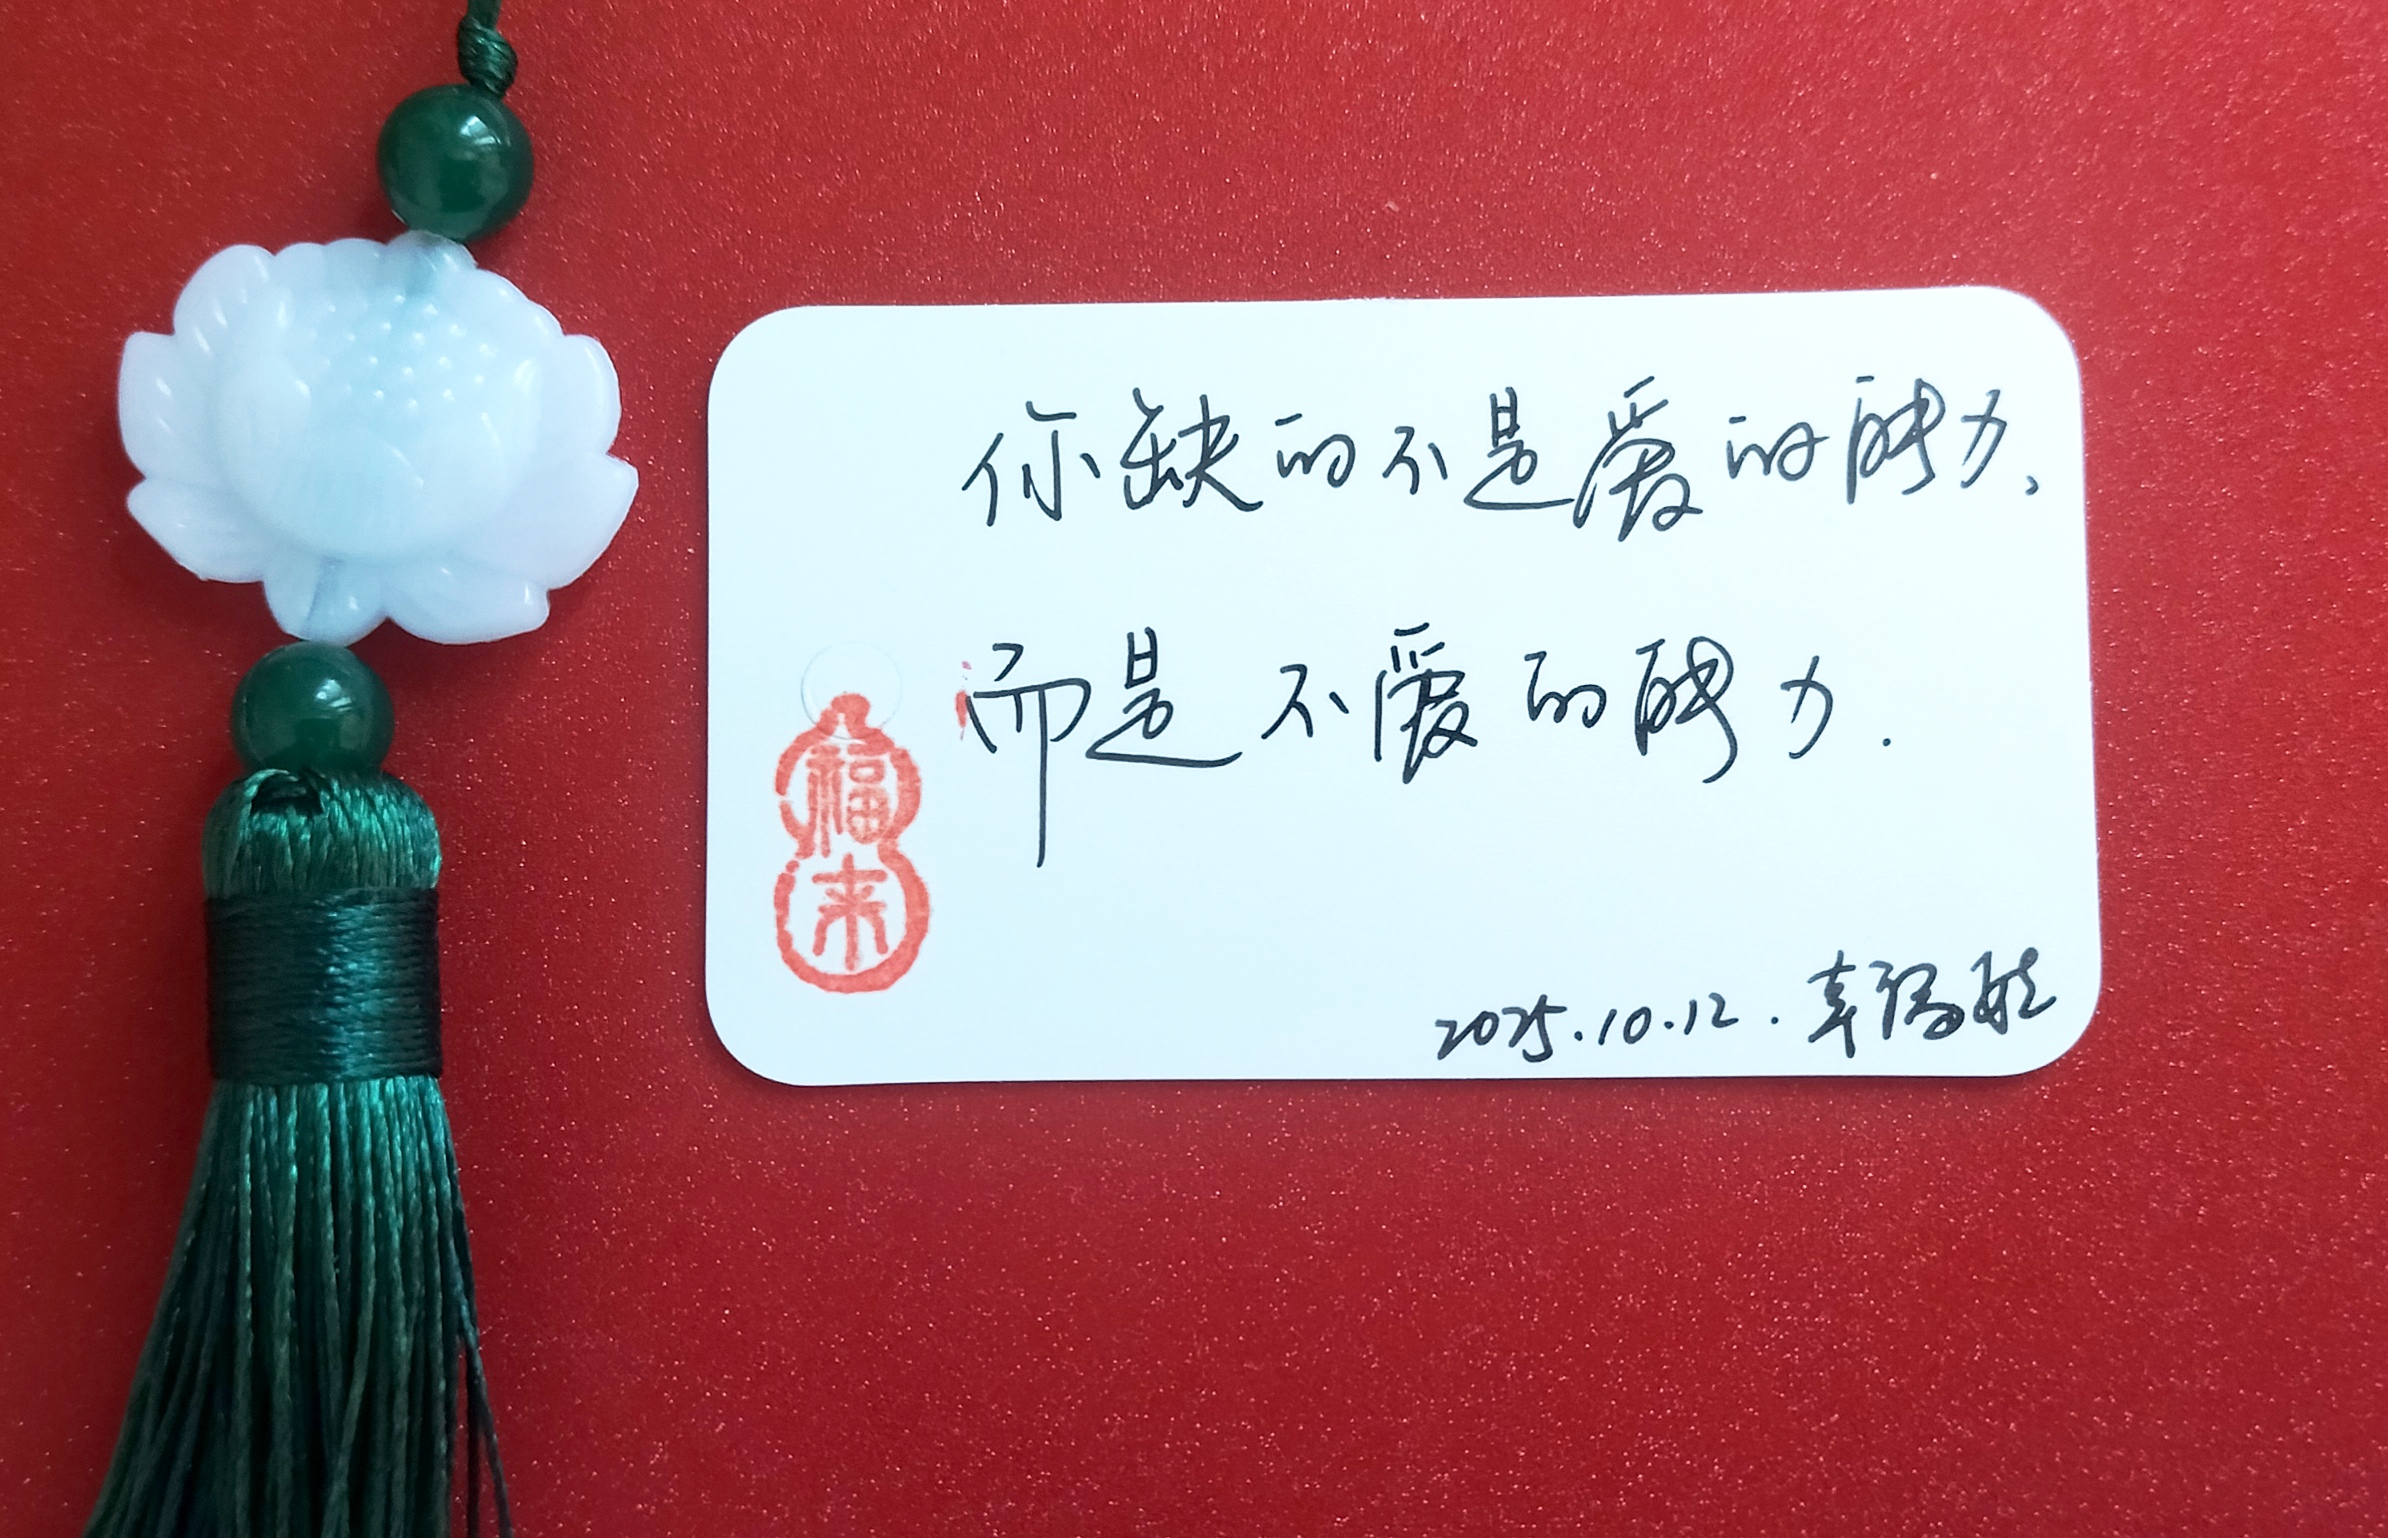 你缺的不是爱的能力、
而是不爱的能力.
福来
2025.10.12. 幸福